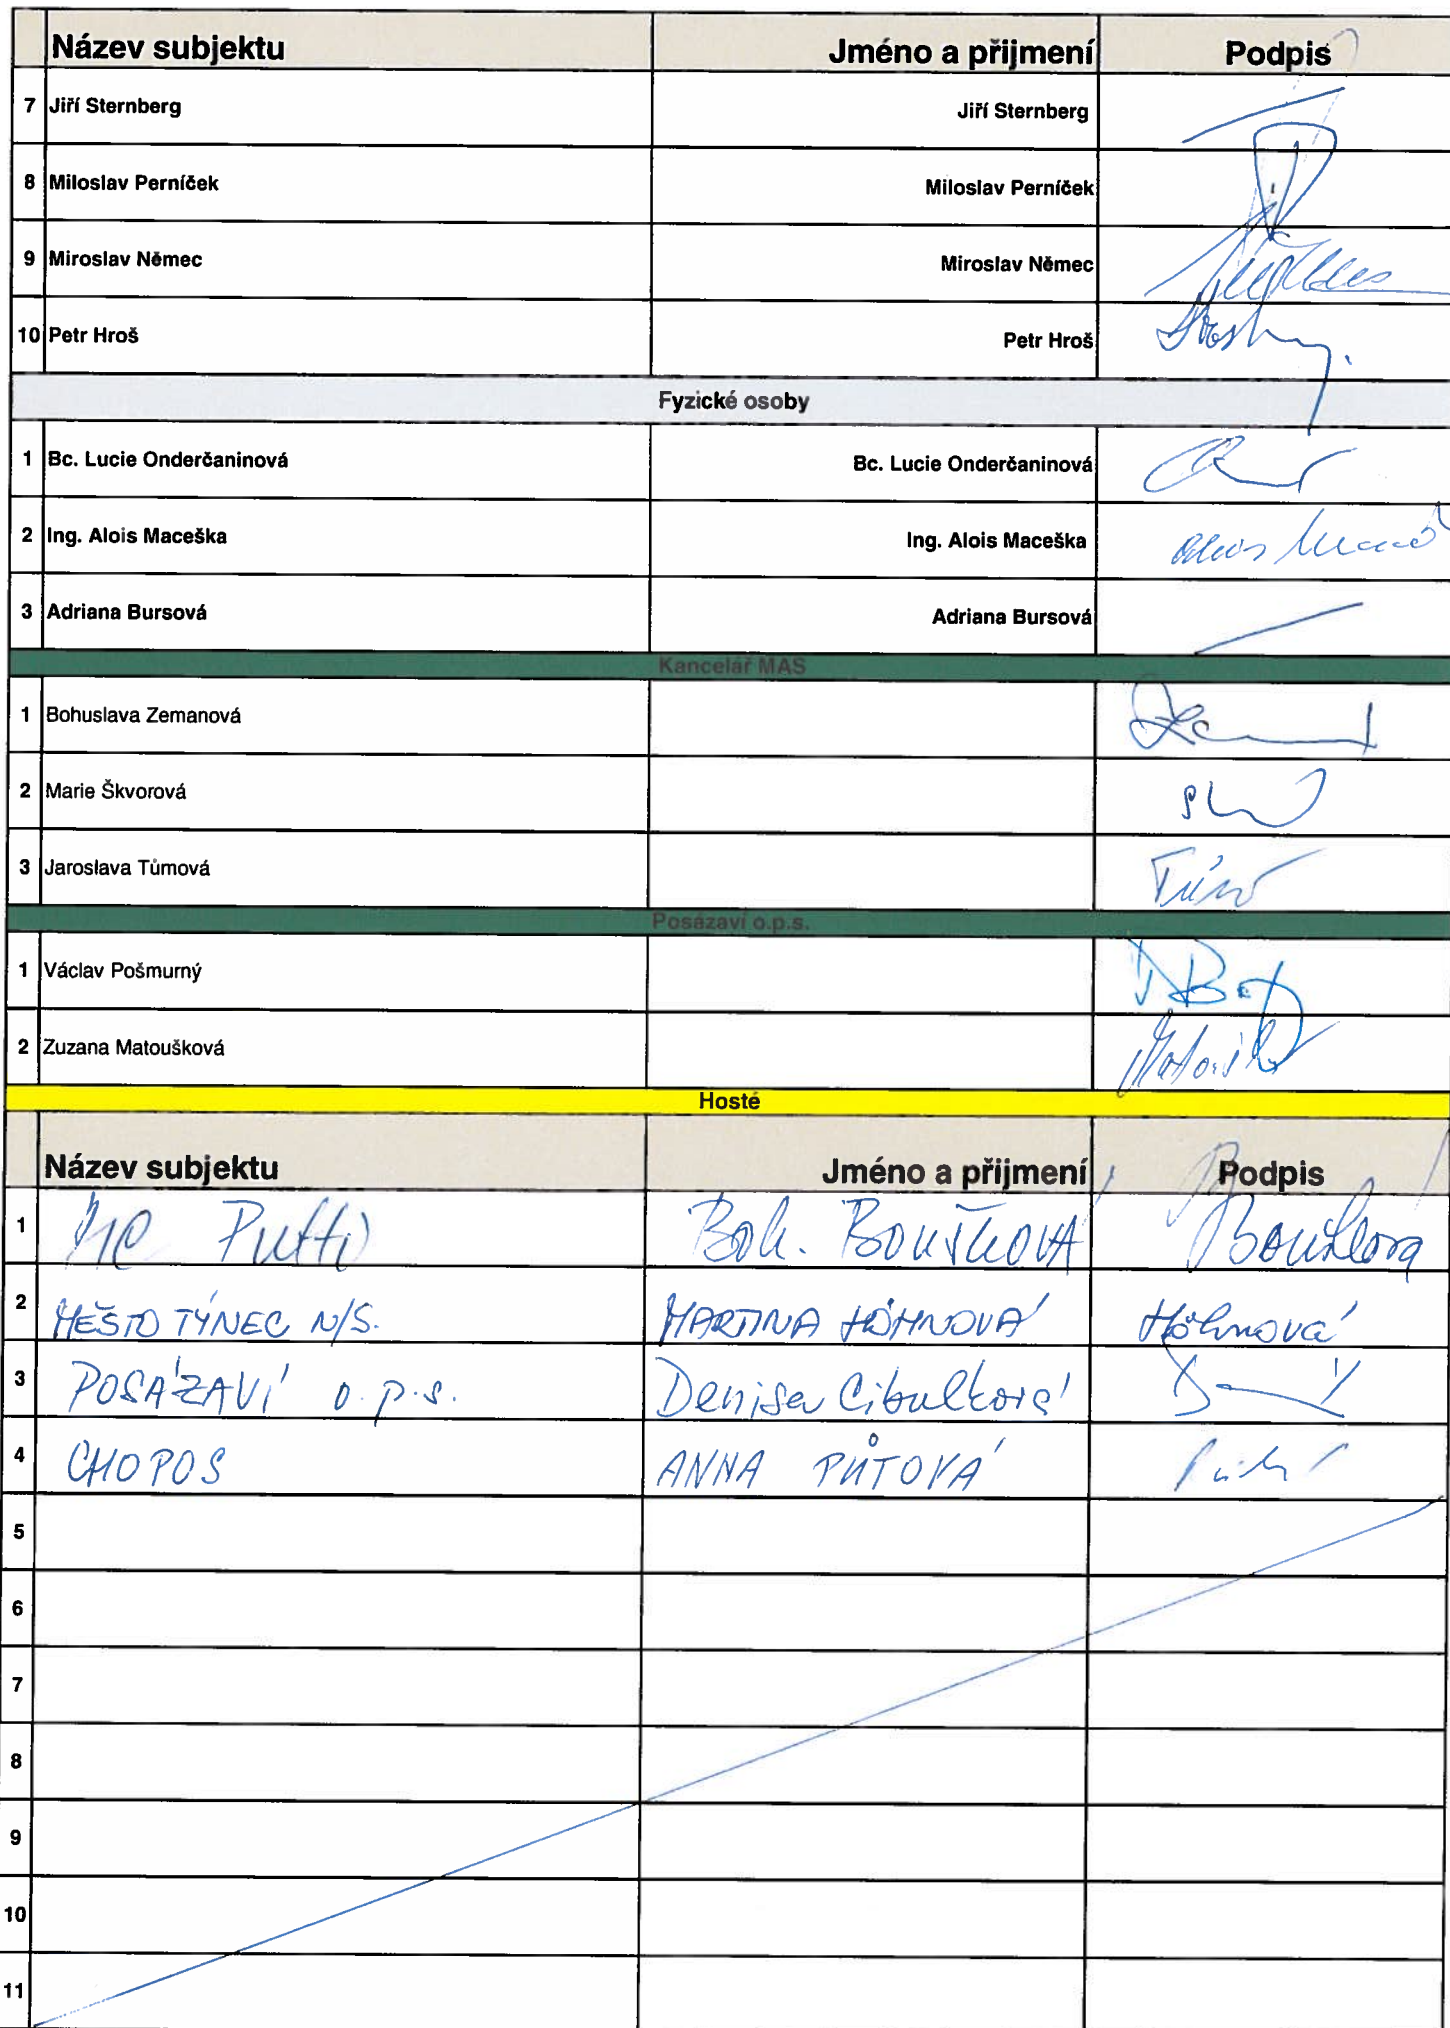 Název subjektu Jméno a přijmení Podpis
7 Jiří Sternberg Jiří Sternberg
8 Miloslav Perníček Miloslav Perníček
9 Miroslav Němec Miroslav Němec
10 Petr Hroš Petr Hroš
Fyzické osoby
1 Bc. Lucie Onderčaninová Bc. Lucie Onderčaninová
2 Ing. Alois Maceška Ing. Alois Maceška
3 Adriana Bursová Adriana Bursová
Kancelář MAS
1 Bohuslava Zemanová
2 Marie Škvorová
3 Jaroslava Tůmová
Posázaví o.p.s.
1 Václav Pošmurný
2 Zuzana Matoušková
Hosté
Název subjektu Jméno a přijmení Podpis
1 Putti Boh. BOUŠKOVÁ Boušková
2 MĚSTO TÝNEC N/S. MARTINA HÖHNOVÁ Höhnová
3 POSÁZAVÍ o.p.s. Denisa Cibulková
4 CHOPOS ANNA PŮTOVÁ
5
6
7
8
9
10
11